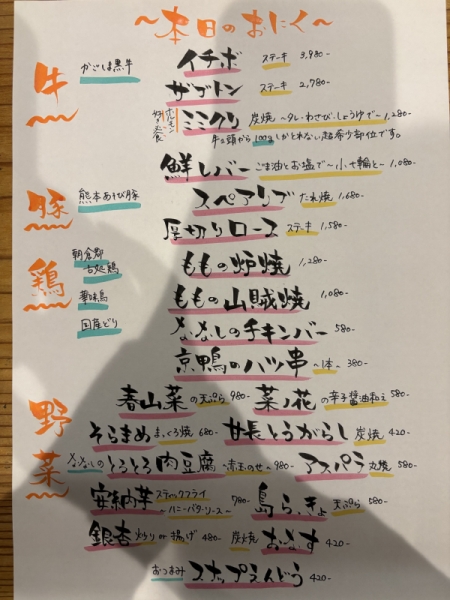 ～本日のおにく～
牛
かごしま黒牛
イチボ ステーキ 3,980-
ザブトン ステーキ 2,780-
ホルモン好き必食 ミミクリ 炭焼～タレ・わさび・しょうゆで～ 1,280-
牛1頭から100gしかとれない超希少部位です。
鮮レバー ごま油とお塩で～小さな輪と～ 1,080-
豚
熊本あそび豚
スペアリブ たれ焼 1,680-
厚切りロース ステーキ 1,580-
鶏
朝倉郡
古処鶏
華味鳥
国産どり
ももの炉焼 1,280-
ももの山賊焼 1,080-
ななしのチキンバー 580-
京鴨のハツ串 ～1本～ 380-
野菜
春山菜の天ぷら 980- 菜ノ花の辛子醤油和え 580-
そらまめ まっくろ焼 680- 甘長とうがらし 炭焼 420-
ななしのとろとろ肉豆腐 ～赤玉のせ～ 980- アスパラ 丸焼 580-
安納芋 スティックフライ～ハニーバターソース～ 780- 島らっきょ 天ぷら 580-
銀杏 炒り or 揚げ 480- 炭焼 おなす 420-
おつまみ スナップえんどう 420-